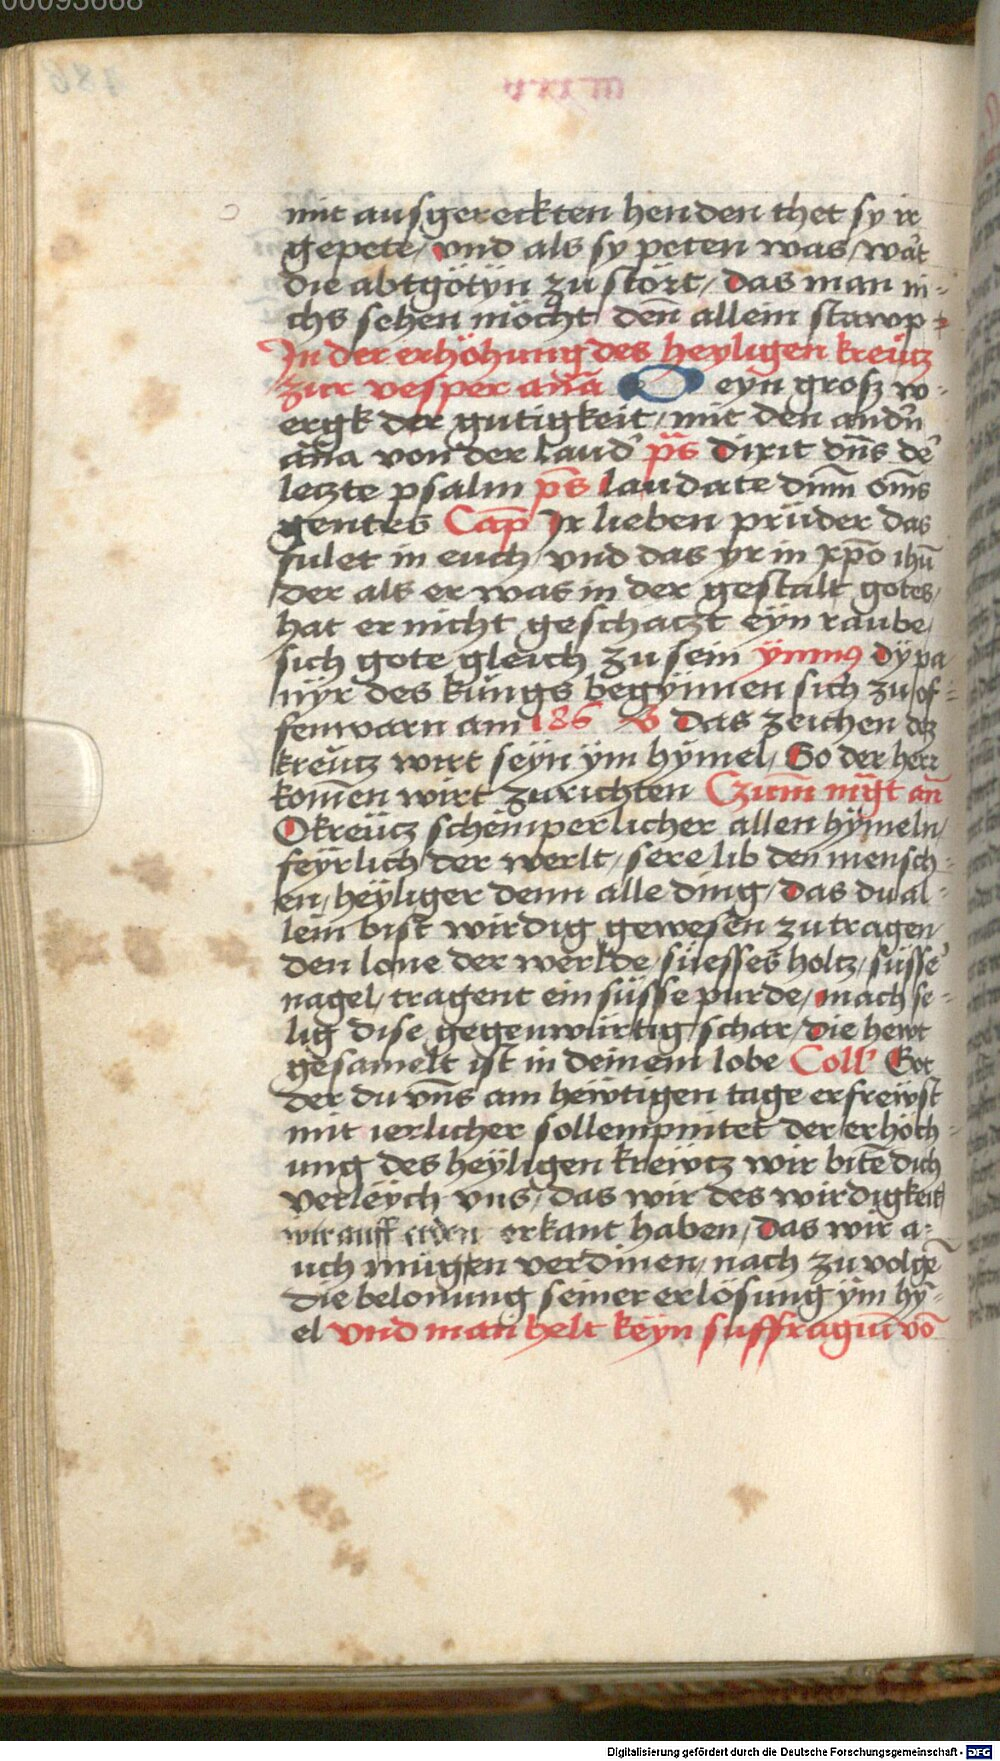 00093668
mit ausgereckten henden thet sy ir
gepete / vnd als sy peten was / wart
die abtgötyn zu stört / das man ni-
chs sehen möcht denn allein stawp
In der erhöhung des heyligen kreütz
zur vesper anā O eyn grosz w-
ergk der gutigkeit / mit den andn̄
anā von der laud' ps̄ Dixit dns̄ de'
letzte psalm ps̄ laudate dnm̄ om̄s
gentes Cap̄ Ir lieben prüder das
fulet in euch / vnd das yr in xp̄o ihū
der als er was in der gestalt gotes /
hat er nicht geschatzt eyn raube /
sich gote gleich zu sein ÿmnus dÿ pa
nÿr des kungs begÿnnen sich zu of-
fenwarn am 186 V Das zeichen dez
kreütz wirt seÿn ÿm hÿmel / So der herr
komen wirt zu richten Czum mg̃t an̄
O kreütz schemperlicher allen hÿmeln /
feÿrlich der werlt / sere lib den mensch-
en / heÿliger denn alle ding / das du al-
lein bist wirdig gewesen zu tragen /
den lone der werlde / süesses holtz / süsse'
nagel / tragent ein süsse purde / mach se-
lig dise gegenwürtig schar / die hewt
gesamelt ist in deinem lobe Coll' Got
der du vns̄ am hewtigen tage erfrewst
mit ierlicher sollempnitet der erhöch-
ung des heÿligen krewtz wir bitē dich
verleÿch vns / das wir des wirdigkeit
wir auff erden erkant haben / das wir a-
uch mügen verdinen / nach zu volgē
die belonung seiner erlösung ÿm hÿ-
el vnd man helt keÿn suffragiū vō
Digitalisierung gefördert durch die Deutsche Forschungsgemeinschaft - DFG